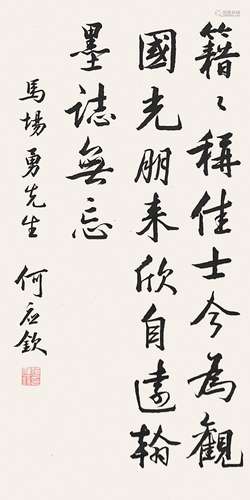 籍々稱佳士今為觀
國光朋来欣自遠翰
墨誌無忘
馬場勇先生
何应欽